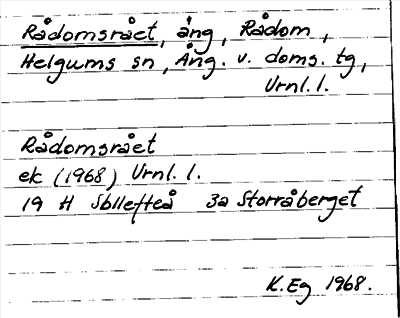 Rådomsrået, äng, Rådom,
Helgums sn, Ång. v. doms. tg,
Urnl. l.
Rådomsrået
ek (1968) Urnl. l.
19 H Sbllefteå 3a Storråberget
K. Eg 1968.